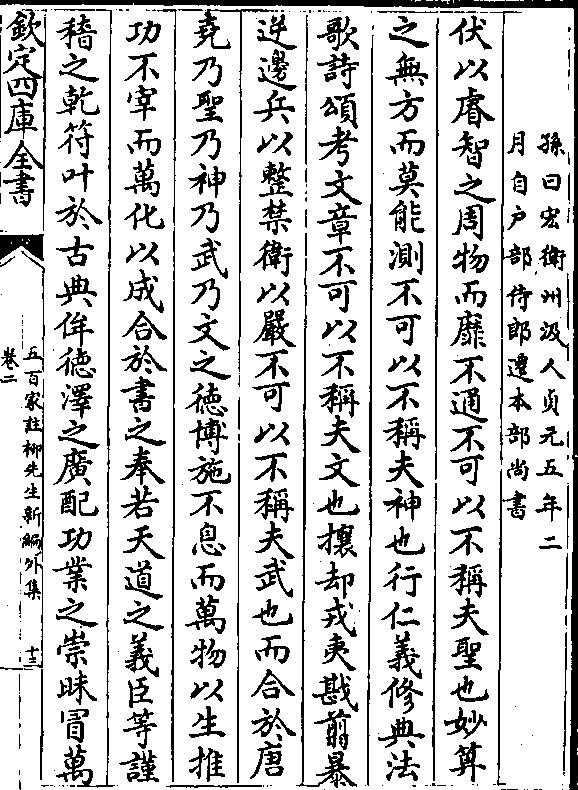 孫曰宏衛州汲人貞元五年二
月自戸部侍郎遷本部尚書
伏以睿智之周物而靡不通不可以不稱夫聖也妙算
之無方而莫能測不可以不稱夫神也行仁義修典法
歌詩頌考文章不可以不稱夫文也攘却戎夷戡翦暴
逆邊兵以整禁衛以嚴不可以不稱夫武也而合於唐
堯乃聖乃神乃武乃文之徳博施不息而萬物以生推
功不宰而萬化以成合於書之奉若天道之義臣等謹
稽之乾符叶於古典侔徳澤之廣配功業之崇昧冒萬
欽定四庫全書
五百家註柳先生新編外集
卷二
十三